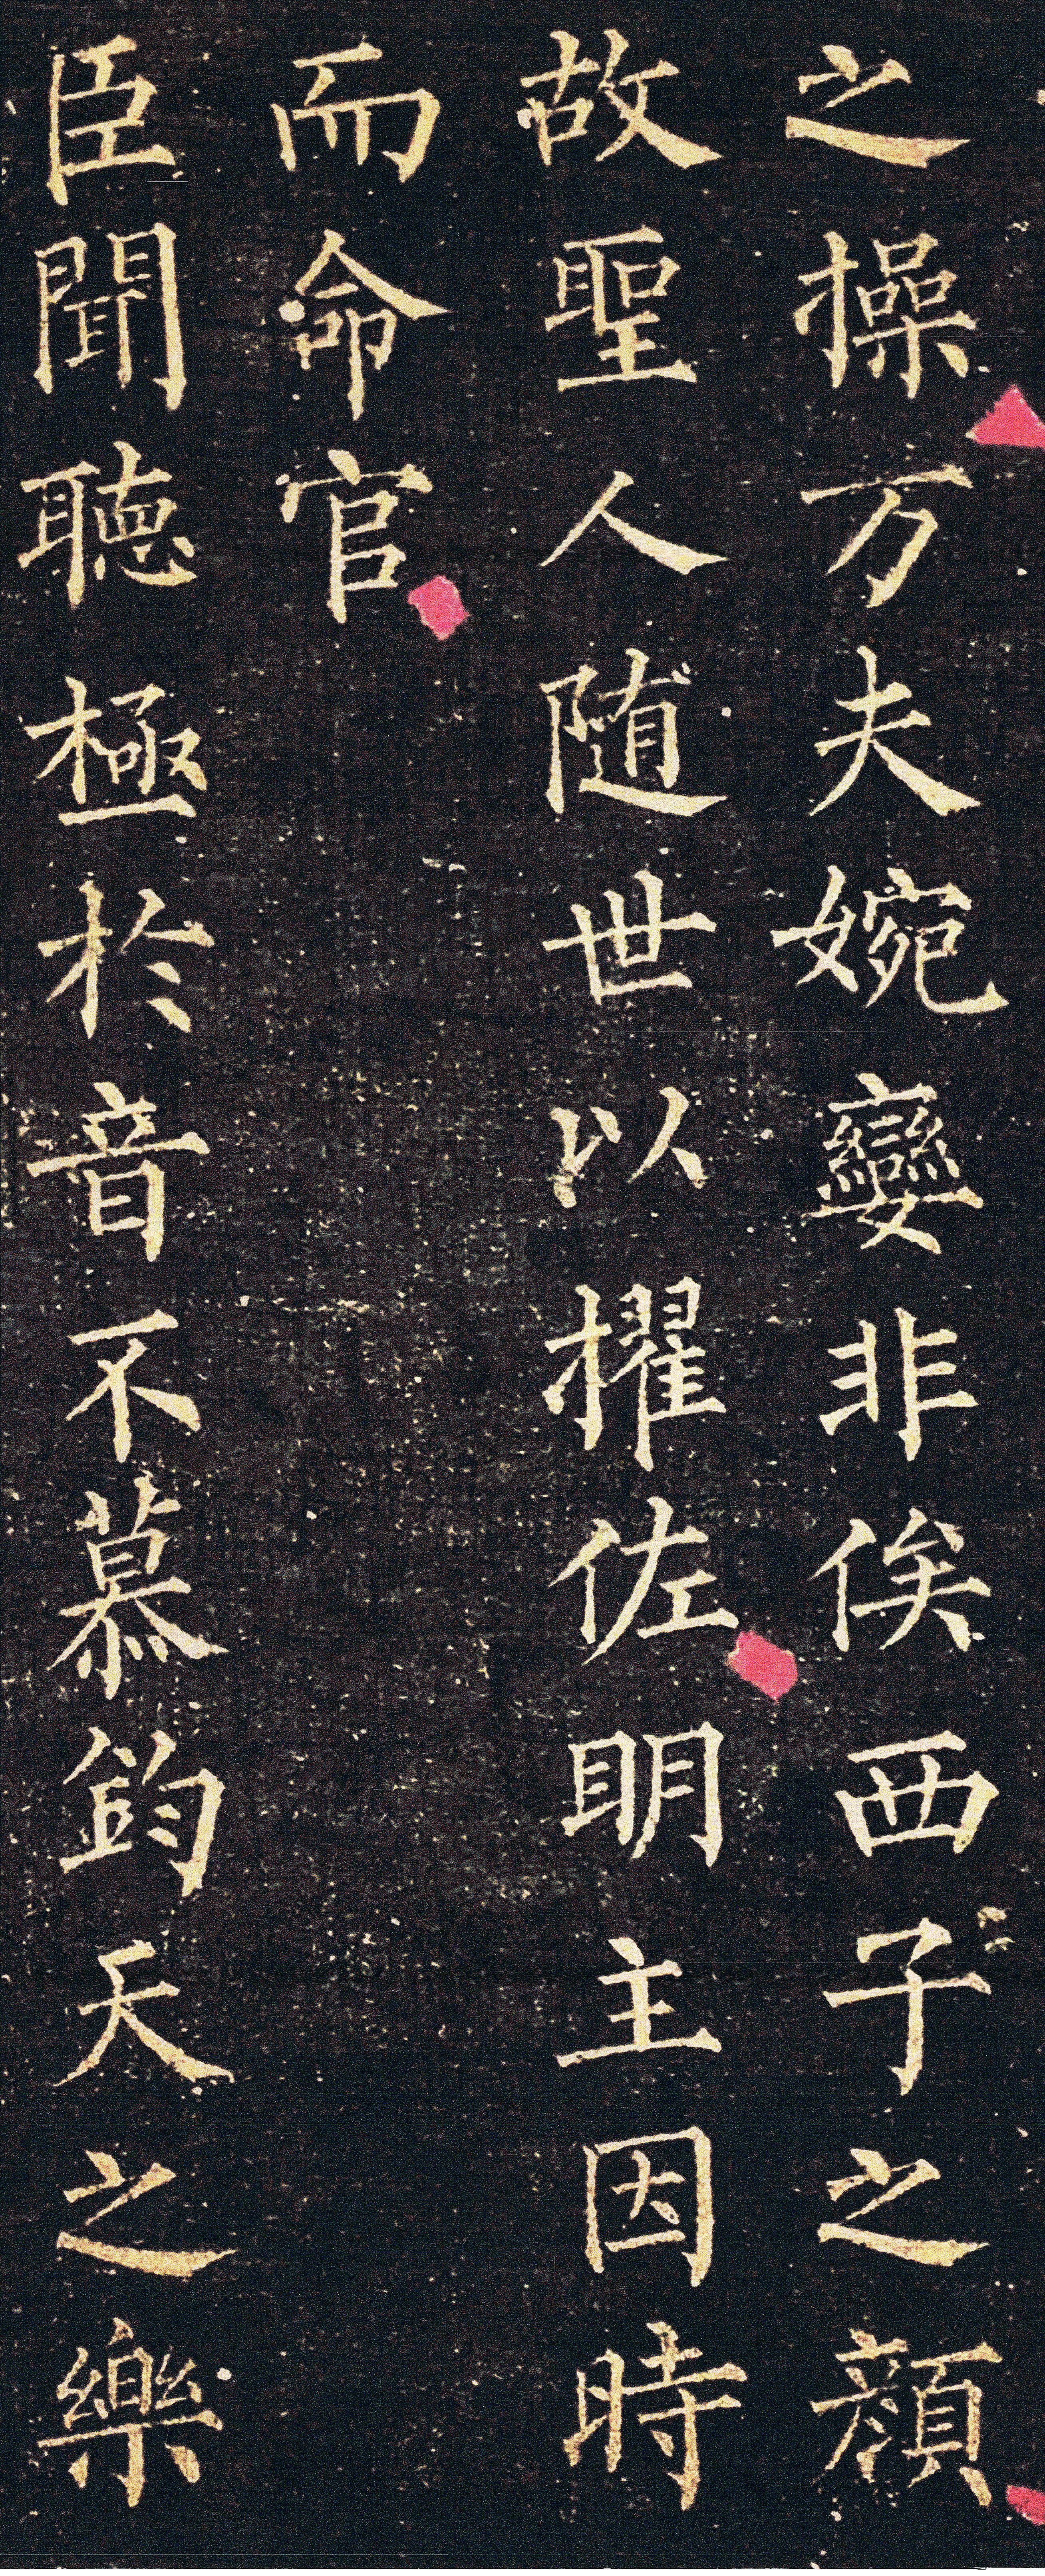 之操万夫婉孌非俟西子之顔
故聖人随世以擢佐明主因時
而命官
臣聞聽極於音不慕鈞天之樂